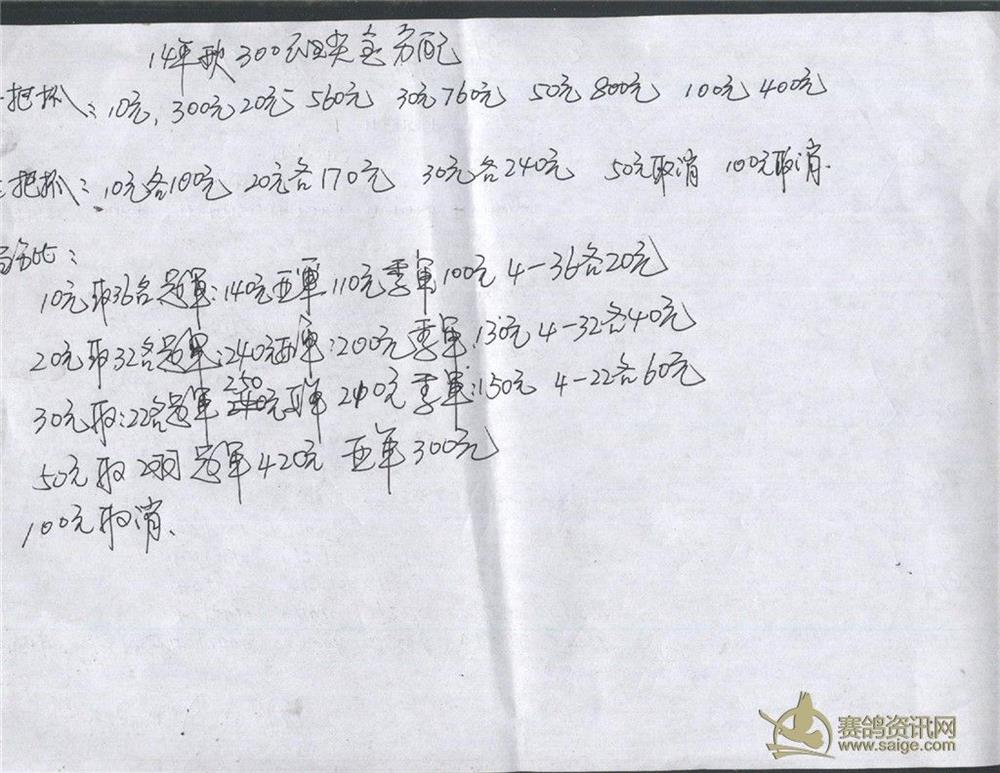 14年秋300公里奖金分配
一把抓：10元，300元 20元 560元 30元 760元 50元 800元 100元 400元
把抓：10元各100元 20元各170元 30元各240元 50元取消 100元取消.
10元取36名冠軍:140元亚軍110元季軍100元 4-36各20元
20元取32名冠軍:240元亚軍:200元季軍:130元 4-32各40元
30元取:22名冠軍250元亚軍 200元季軍:150元 4-22各60元
50元取2羽冠軍420元 亚軍300元
100元取消.
赛鸽资讯网
www.saige.com